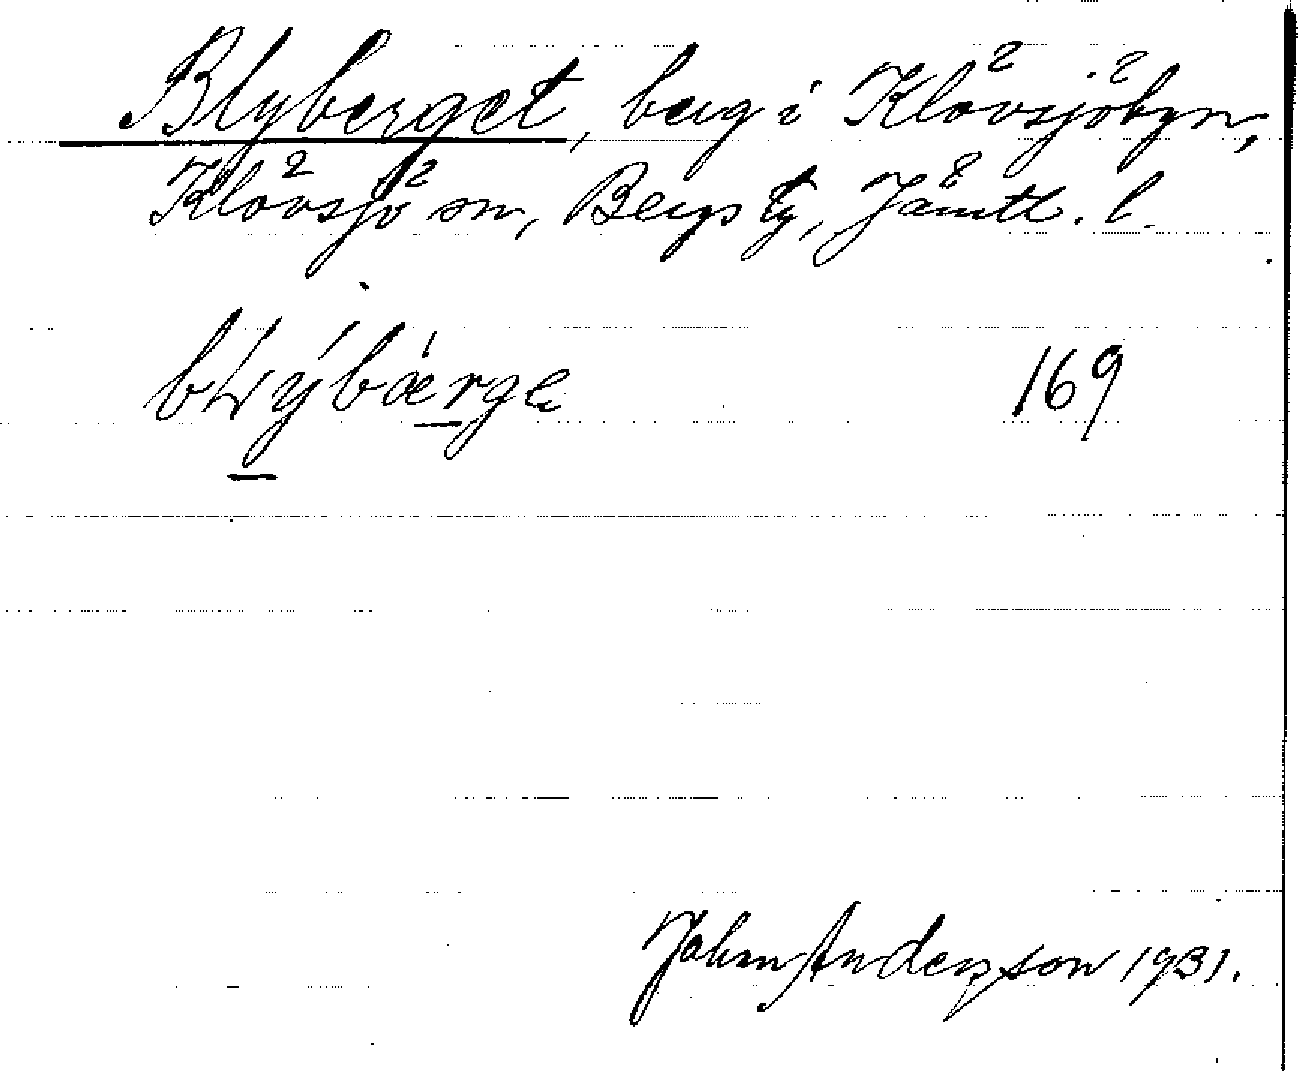 Blyberget, berg i Klövsjöbyn,
Klövsjö sn, Bergs tg, Jämtl. l.
169
John Anderson 1931.